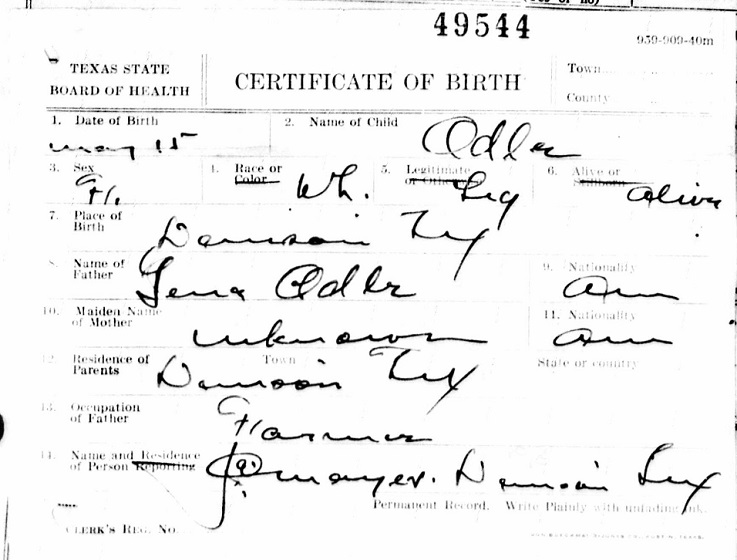 49544
939-909-40m
TEXAS STATE
BOARD OF HEALTH
CERTIFICATE OF BIRTH
Town
County
1. Date of Birth
may 15
2. Name of Child
Adler
3. Sex
F.
4. Race or Color
Wh.
5. Legitimate or Otherwise
Leg
6. Alive or Stillborn
alive
7. Place of Birth
Tex
8. Name of Father
Adler
9. Nationality
Am
10. Maiden Name of Mother
unknown
11. Nationality
Am
12. Residence of Parents
Town
Tex
State or country
13. Occupation of Father
Farmer
14. Name and Residence of Person Reporting
mayer. Tex
Permanent Record. Write Plainly with unfading ink.
CLERK'S REG. NO.